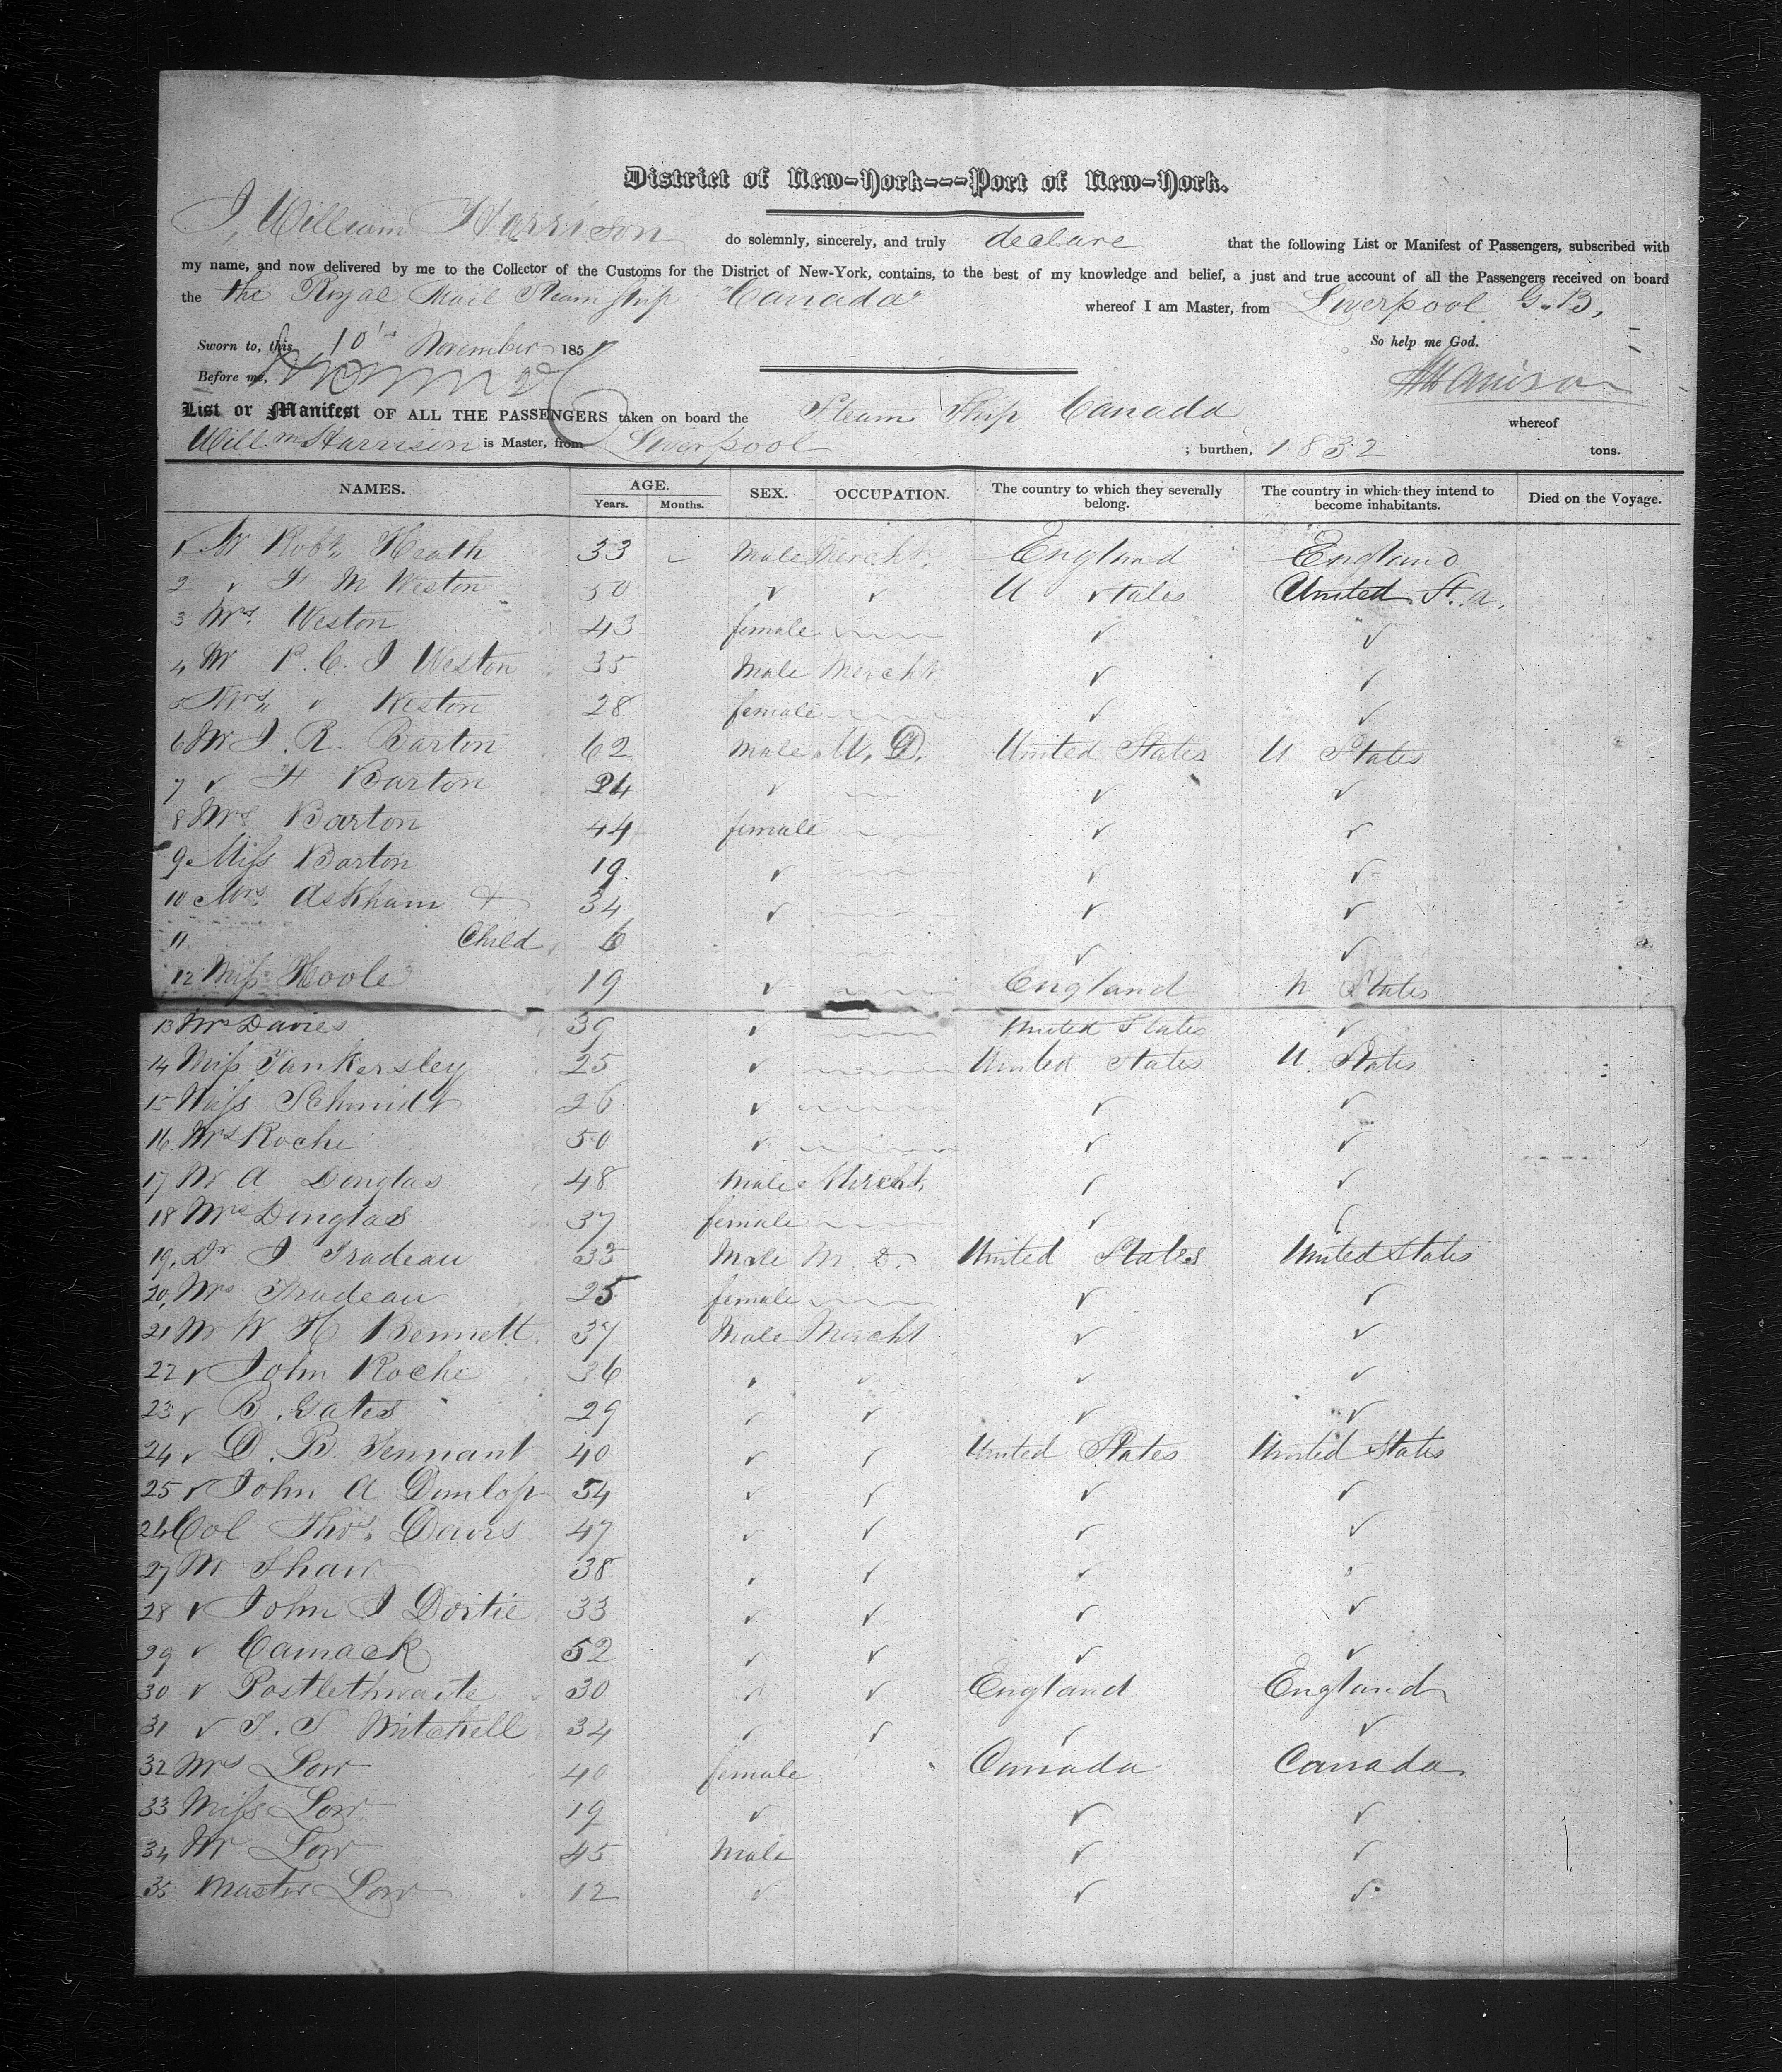 District of New-York---Port of New-York.
I, William Harrison do solemnly, sincerely, and truly declare that the following List or Manifest of Passengers, subscribed with
my name, and now delivered by me to the Collector of the Customs for the District of New-York, contains, to the best of my knowledge and belief, a just and true account of all the Passengers received on board
the the Royal Mail Steam ship "Canada" whereof I am Master, from Liverpool G.B,
Sworn to, this 10th November 185 So help me God.
Before me, Harrison
List or Manifest OF ALL THE PASSENGERS taken on board the Steam Ship Canada whereof
Willm Harrison is Master, from Liverpool ; burthen, 1832 tons.
NAMES. AGE. SEX. OCCUPATION. The country to which they severally belong. The country in which they intend to become inhabitants. Died on the Voyage.
Years. Months.
1 Mr Robt. Heath 33 Male Mercht. England England
2 ✓ F M Weston 50 ✓ ✓ U States United St. a.
3 Mrs. Weston 43 female ✓ ✓
4 Mr P. C. J Weston 35 Male Mercht. ✓ ✓
5 Mrs. ✓ Weston 28 female ✓ ✓
6 Mr J. R. Barton 62 Male M. D. United States U States
7 ✓ F Barton 24 ✓ ✓ ✓
8 Mrs Barton 44 female ✓ ✓
9 Miss Barton 19 ✓ ✓ ✓
10 Mrs Askham & 34 ✓ ✓ ✓
11 Child 6 ✓ ✓
12 Miss Hoole 19 ✓ England U States
13 Mrs Davies 39 ✓ United States ✓
14 Miss Tankersley 25 ✓ United States U. States
15 Miss Schmidt 26 ✓ ✓ ✓
16 Mrs Roche 50 ✓ ✓ ✓
17 Mr A Douglas 48 Male Mercht. ✓ ✓
18 Mrs Douglas 37 female ✓ ✓
19, Dr J Trudeau 33 Male M. D. United States United States
20, Mrs Trudeau 25 female ✓ ✓
21 Mr W H Bennett 37 Male Mercht ✓ ✓
22 ✓ John Roche 36 ✓ ✓ ✓ ✓
23 ✓ B. Gates 29 ✓ ✓ ✓ ✓
24 ✓ D. B Tennant 40 ✓ ✓ United States United States
25 ✓ John A Dunlop 54 ✓ ✓ ✓ ✓
26 Col Thos. Davis 47 ✓ ✓ ✓ ✓
27 Mr Shaw 38 ✓ ✓ ✓ ✓
28 ✓ John J Dortie 33 ✓ ✓ ✓ ✓
29 ✓ Camack 52 ✓ ✓ ✓ ✓
30 ✓ Postlethwaite 30 ✓ ✓ England England
31 ✓ T. S Mitchell 34 ✓ ✓ ✓ ✓
32 Mrs Low 40 female Canada Canada
33 Miss Low 19 ✓ ✓ ✓
34 Mr Low 45 Male ✓ ✓
35 Master Low 12 ✓ ✓ ✓